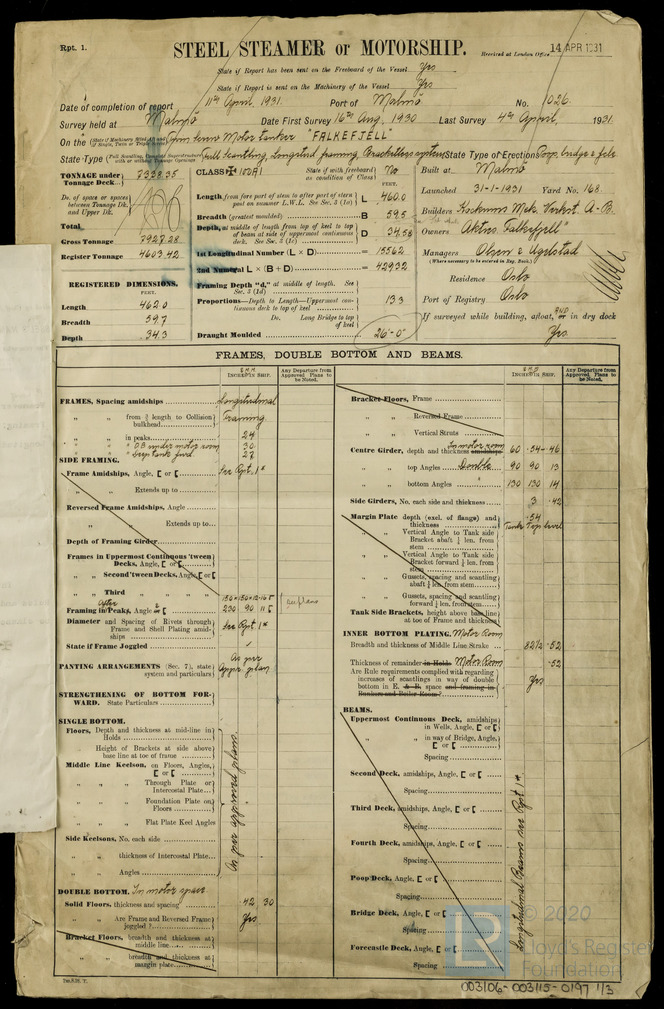 Rpt. 1.
STEEL STEAMER or MOTORSHIP.
Received at London Office 14 APR 1931
State if Report has been sent on the Freeboard of the Vessel Yes
State if Report is sent on the Machinery of the Vessel Yes
Date of completion of report 11th April, 1931. Port of Malmö No. 1026.
Survey held at Malmö Date First Survey 16th Aug. 1930 Last Survey 4th April, 1931.
On the Motor tanker "FALKEFJELL"
State Type Full Scantling, Longitnd. framing, Bracketless system State Type of Erections Poop, bridge & fcle
TONNAGE under Tonnage Deck
CLASS ✠ 100A1
State if with freeboard as condition of Class No
Built at Malmö
Launched 31-1-1931 Yard No. 168.
Do. of space or spaces between Tonnage Dk. and Upper Dk.
Total
Gross Tonnage 7927.28
Register Tonnage 4603.42
FEET.
Length from fore part of stem to after part of stern post on summer L.W.L. See Sec. 3 (1a) L 460.0
Breadth (greatest moulded) B 59.5
Depth, at middle of length from top of keel to top of beam at side of uppermost continuous deck. See Sec. 3 (1c) D 34.58
1st Longitudinal Number (L × D) = 15562
2nd Numeral L × (B + D) = 42932
Framing Depth "d," at middle of length. See Sec. 3 (1d)
Proportions—Depth to Length—Uppermost continuous deck to top of keel 13.3
Do. Long Bridge to top of keel
Draught Moulded 26'-0"
Builders Kockums Mek. Verkst. A-B.
Owners Akties. Falkefjell"
Managers Olsen & Ugelstad
(Where necessary to be entered in Reg. Book.)
Residence Oslo
Port of Registry Oslo
If surveyed while building, afloat, AND or in dry dock
Yes.
REGISTERED DIMENSIONS.
FEET.
Length 462.0
Breadth 59.7
Depth 34.3
FRAMES, DOUBLE BOTTOM AND BEAMS.
INCHES IN SHIP.
Any Departure from Approved Plans to be Noted.
INCHES IN SHIP.
Any Departure from Approved Plans to be Noted.
FRAMES, Spacing amidships Longitudinal
" " from ⅗ length to Collision bulkhead Framing
" " in peaks 24
" " D.B. under motor room 30
" " Deep tank fwd 27
SIDE FRAMING.
Frame Amidships, Angle, [ or [ See Rpt. 1*
" " Extends up to
Reversed Frame Amidships, Angle
" " Extends up to
Depth of Framing Girder
Frames in Uppermost Continuous 'tween Decks, Angle, [ or [
" " Second 'tween Decks, Angle, [ or [
" " Third
Framing in After Peaks, Angle or [ 230 90 11 [
Diameter and Spacing of Rivets through Frame and Shell Plating amidships See Rpt 1*
State if Frame Joggled
PANTING ARRANGEMENTS (Sec. 7), state system and particulars As per Appr. plan
STRENGTHENING OF BOTTOM FORWARD. State Particulars
SINGLE BOTTOM.
Floors, Depth and thickness at mid-line in Holds
" Height of Brackets at side above base line at toe of frame
Middle Line Keelson, on Floors, Angles, [ or [
" " Through Plate or Intercostal Plate
" " Foundation Plate on Floors
" " Flat Plate Keel Angles
Side Keelsons, No. each side
" " thickness of Intercostal Plate
" " Angles
As per approved plans.
DOUBLE BOTTOM. In motor space
Solid Floors, thickness and spacing .42 30
" Are Frame and Reversed Frame joggled? Yes
Bracket Floors, breadth and thickness at middle line
" " breadth and thickness at margin plate
Bracket Floors, Frame
" " Reversed Frame
" " Vertical Struts
Centre Girder, depth and thickness amidships In motor room 60 .54-.46
" " top Angles Double 90 90 13
" " bottom Angles " 130 130 14
Side Girders, No. each side and thickness 3 .42
Margin Plate depth (excl. of flange) and thickness .54 Tank Top level
" " Vertical Angle to Tank side Bracket abaft ¼ len. from stem
" " Vertical Angle to Tank side Bracket forward ¼ len. from stem
" " Gussets, spacing and scantling abaft ¼ len. from stem
" " Gussets, spacing and scantling forward ¼ len. from stem
Tank Side Brackets, height above base line at toe of Frame and thickness
INNER BOTTOM PLATING. Motor Room
Breadth and thickness of Middle Line Strake 82½ .52
Thickness of remainder in Holds Motor Room .52
Are Rule requirements complied with regarding increases of scantlings in way of double bottom in E. & B. space and framing in Bunkers and Boiler Room? Yes
BEAMS.
Uppermost Continuous Deck, amidships in Wells, Angle, [ or [
" " in way of Bridge, Angle, [ or [
Spacing
Second Deck, amidships, Angle, [ or [
Spacing
Third Deck, amidships, Angle, [ or [
Spacing
Fourth Deck, amidships, Angle, [ or [
Spacing
Poop Deck, Angle, [ or [
Spacing
Bridge Deck, Angle, [ or [
Spacing
Forecastle Deck, Angle, [ or [
Spacing
Longitudinal Beams see Rpt 1*
© 2020
Lloyd's Register
Foundation
003106-003115-0197 1/3